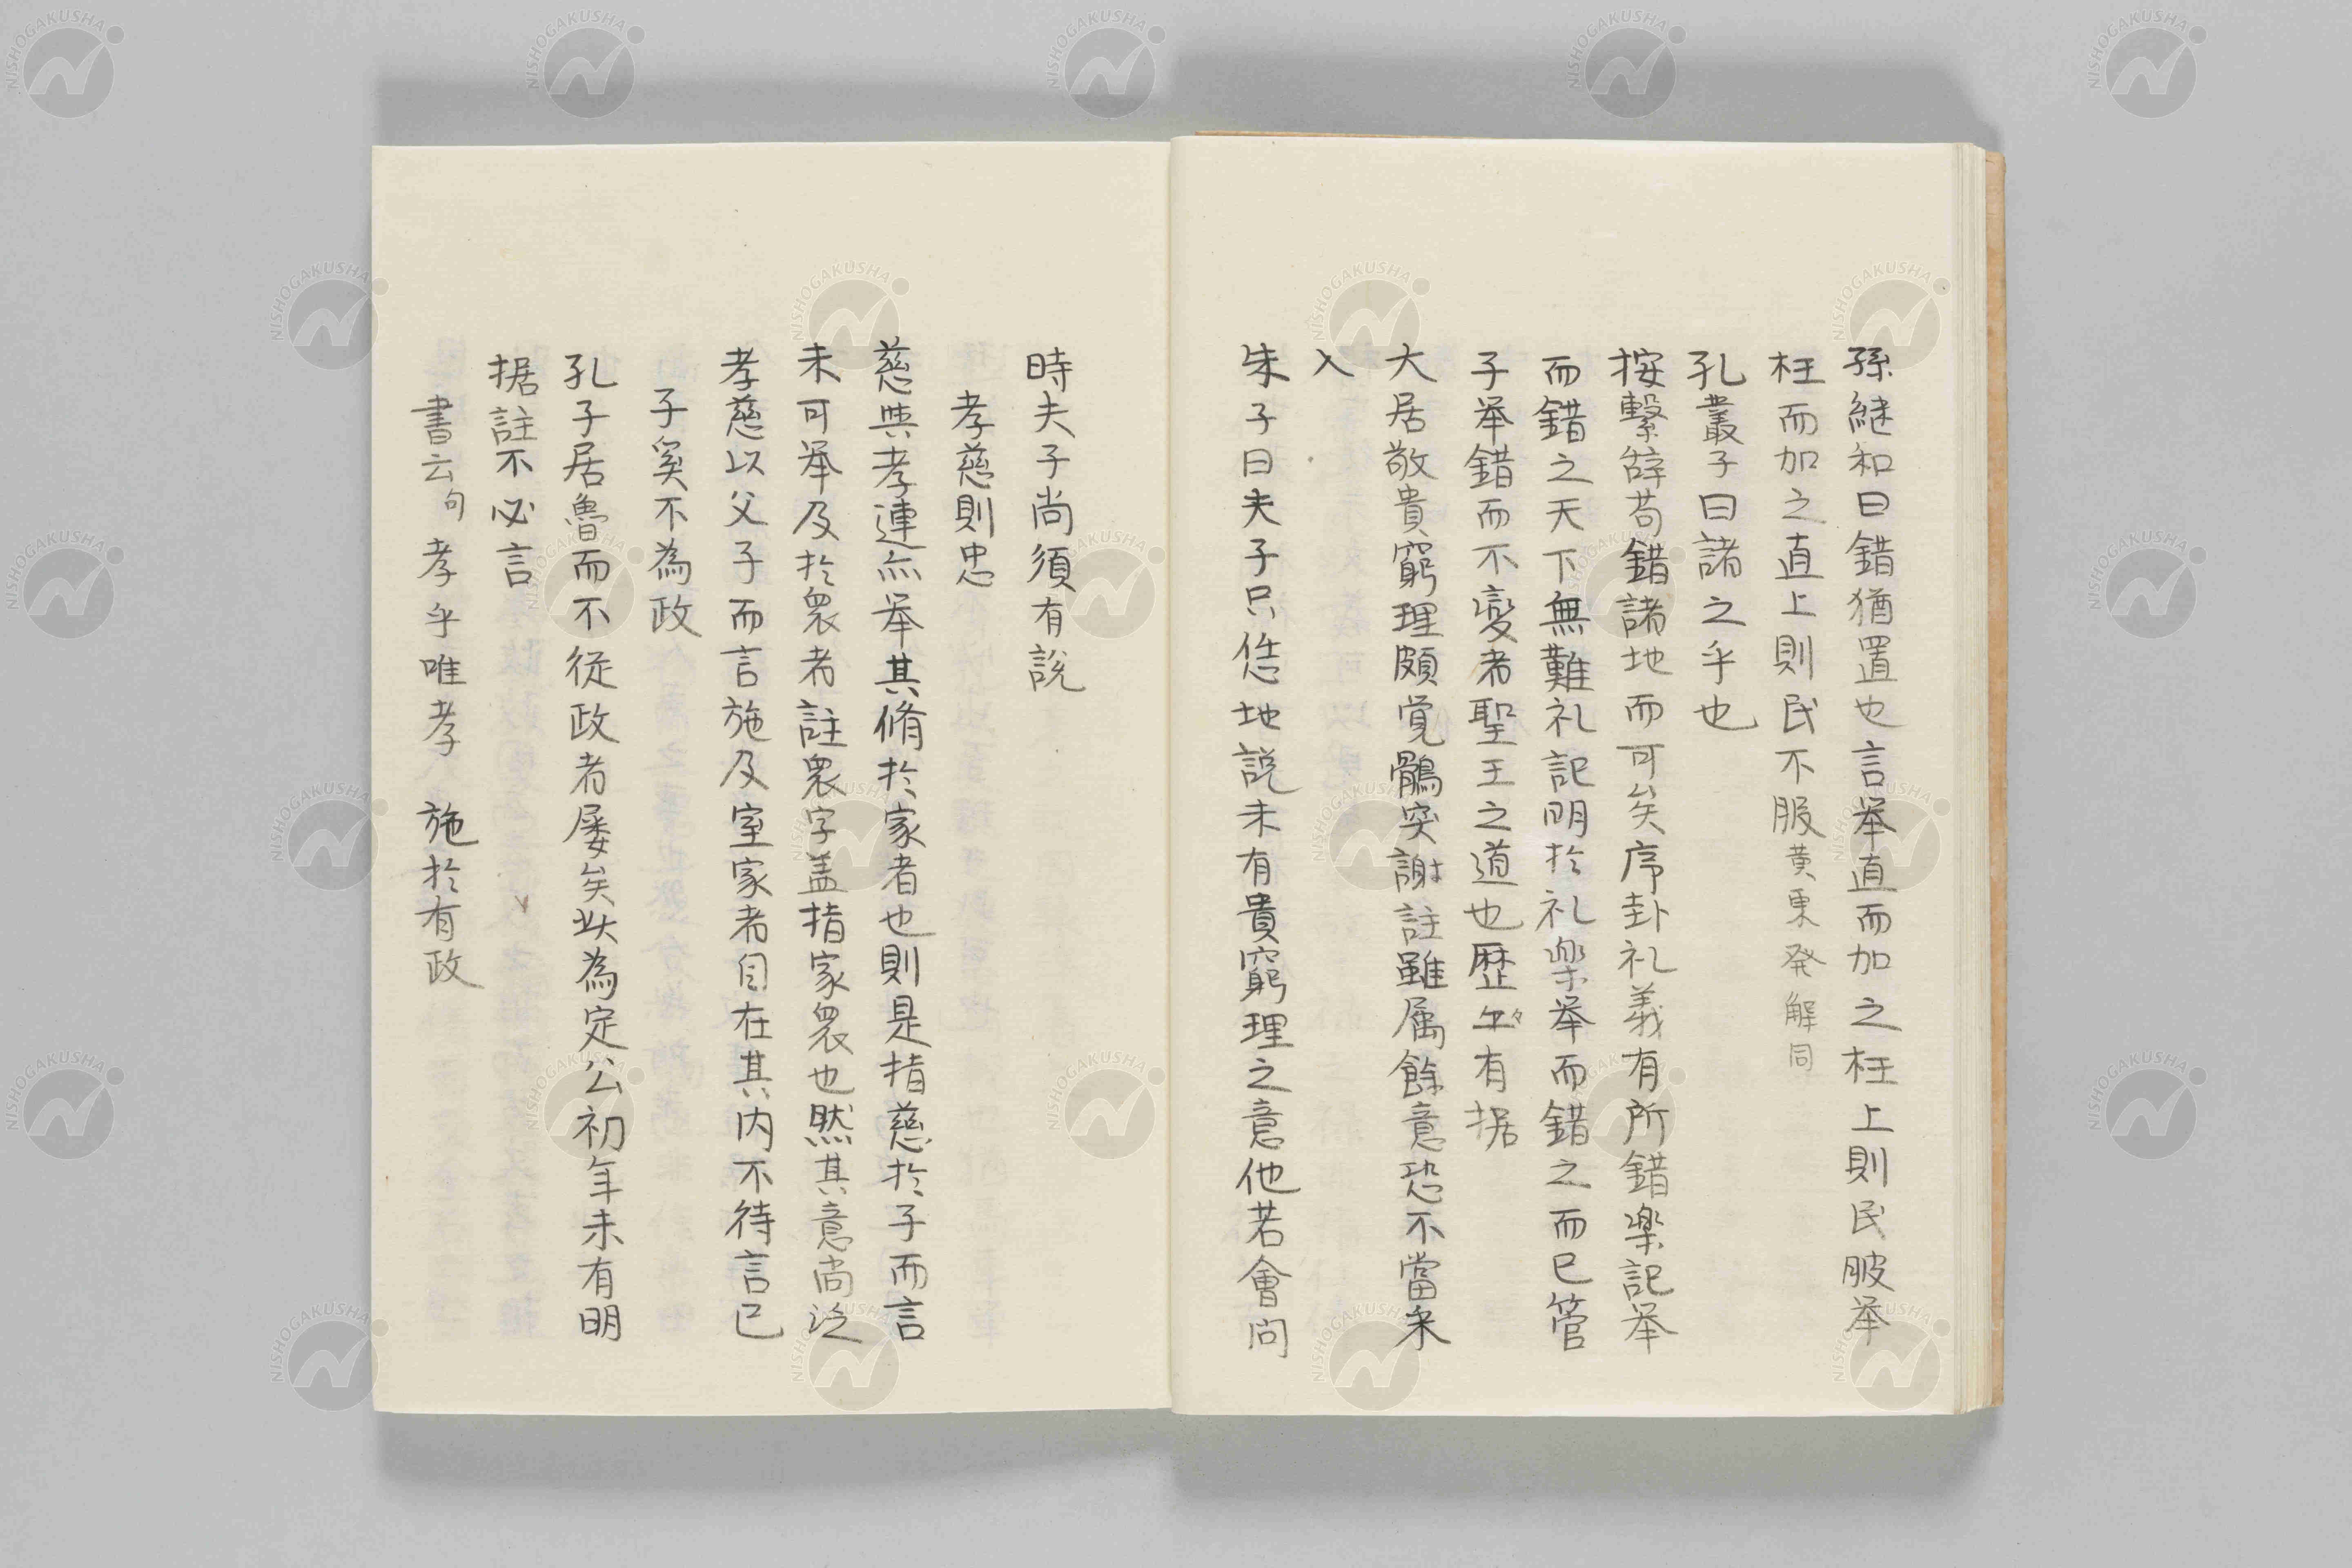 孫継和曰錯猶置也言挙直而加之枉上則民服挙
枉而加之直上則民不服黄東発解同
孔叢子曰諸之乎也
按繋辞苟錯諸地而可矣序卦礼義有所錯楽記挙
而錯之天下無難礼記明於礼楽挙而錯之而已管
子挙錯而不変者聖王之道也歴々有据
大居敬貴窮理頗覚鶻突謝註雖属餘意恐不當来
入
朱子曰夫子只恁地説未有貴窮理之意他若會問
時夫子尚須有説
孝慈則忠
慈與孝連並挙其脩於家者也則是指慈於子而言
未可挙及於衆者註衆字盖指家衆也然其意尚泛
孝慈以父子而言施及室家者自在其内不待言已
子奚不為政
孔子居魯而不従政者屡矣此為定公初年未有明
据註不必言
書云句孝乎唯孝 施於有政
NISHOGAKUSHA